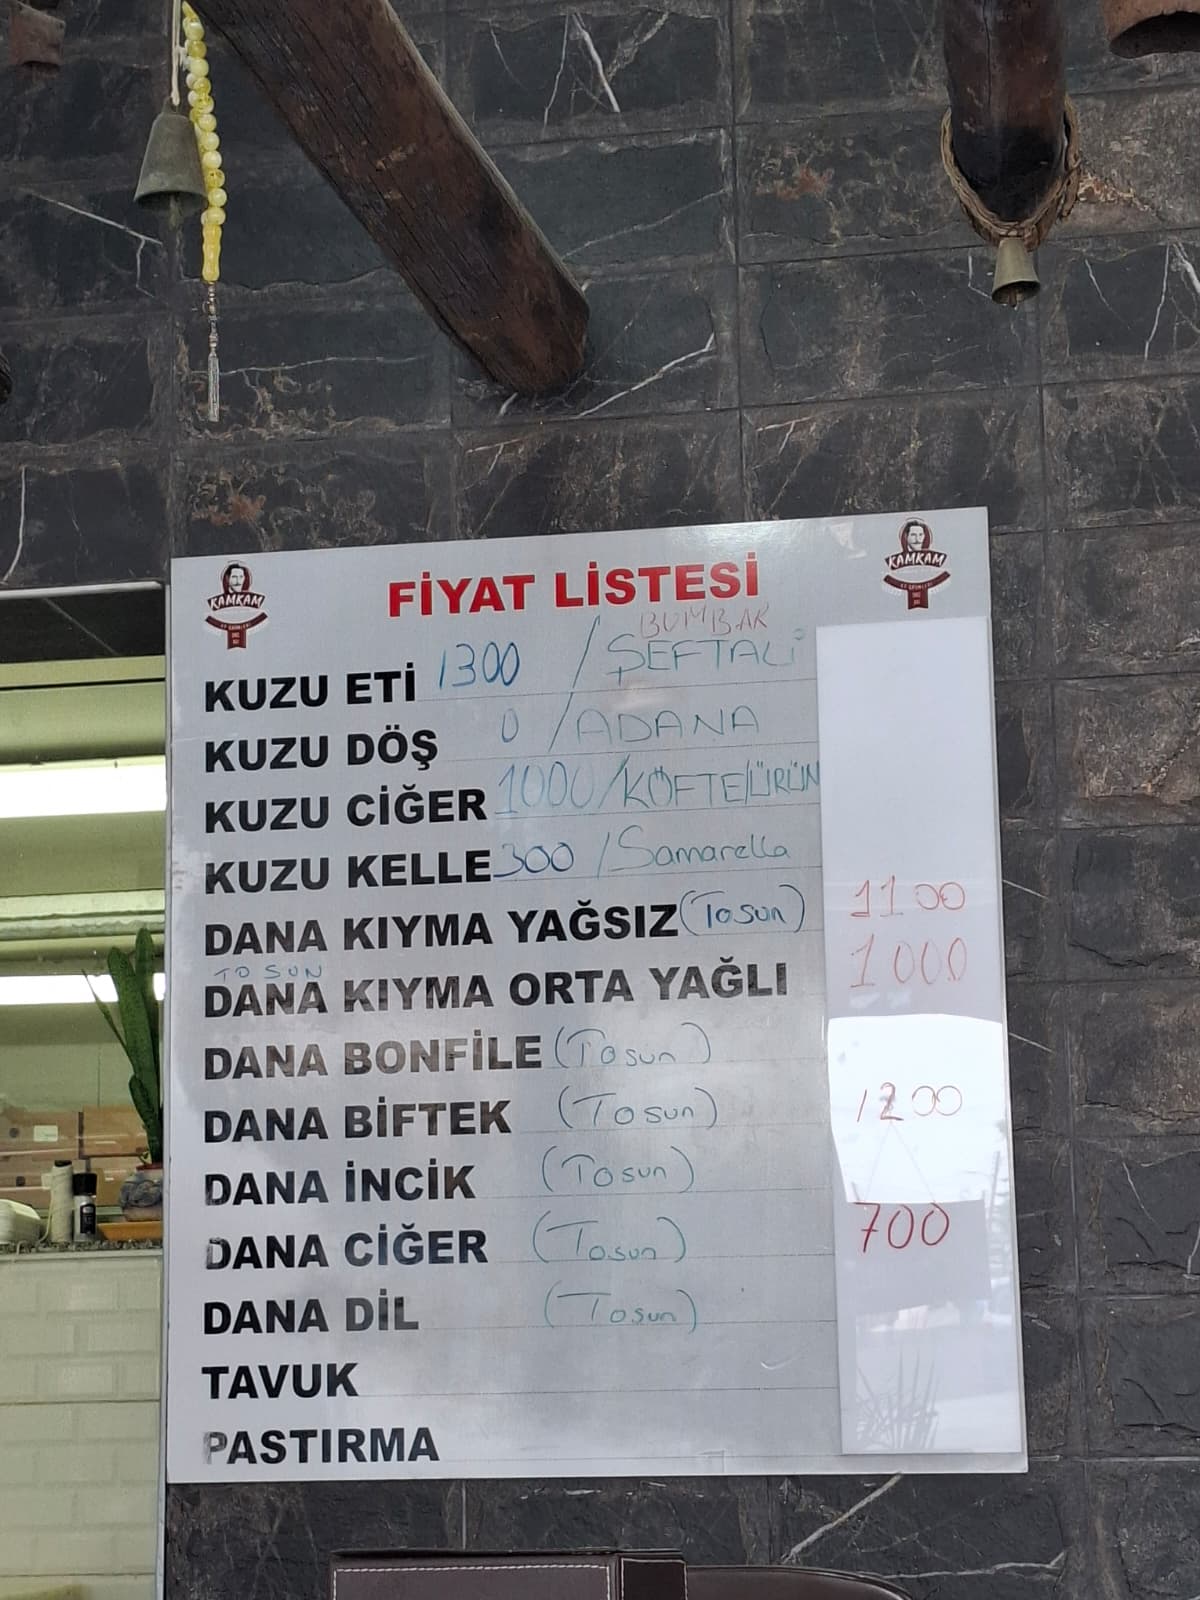 KAMKAM
KAMKAM
FİYAT LİSTESİ
BUMBAR
KUZU ETİ 1300 / ŞEFTALİ
KUZU DÖŞ 0 / ADANA
KUZU CİĞER 1000 / KÖFTE/ÜRÜN
KUZU KELLE 300 / Samarella
DANA KIYMA YAĞSIZ (Tosun) 1100
TOSUN
DANA KIYMA ORTA YAĞLI 1000
DANA BONFİLE (Tosun)
DANA BİFTEK (Tosun) 1200
DANA İNCİK (Tosun)
DANA CİĞER (Tosun) 700
DANA DİL (Tosun)
TAVUK
PASTIRMA